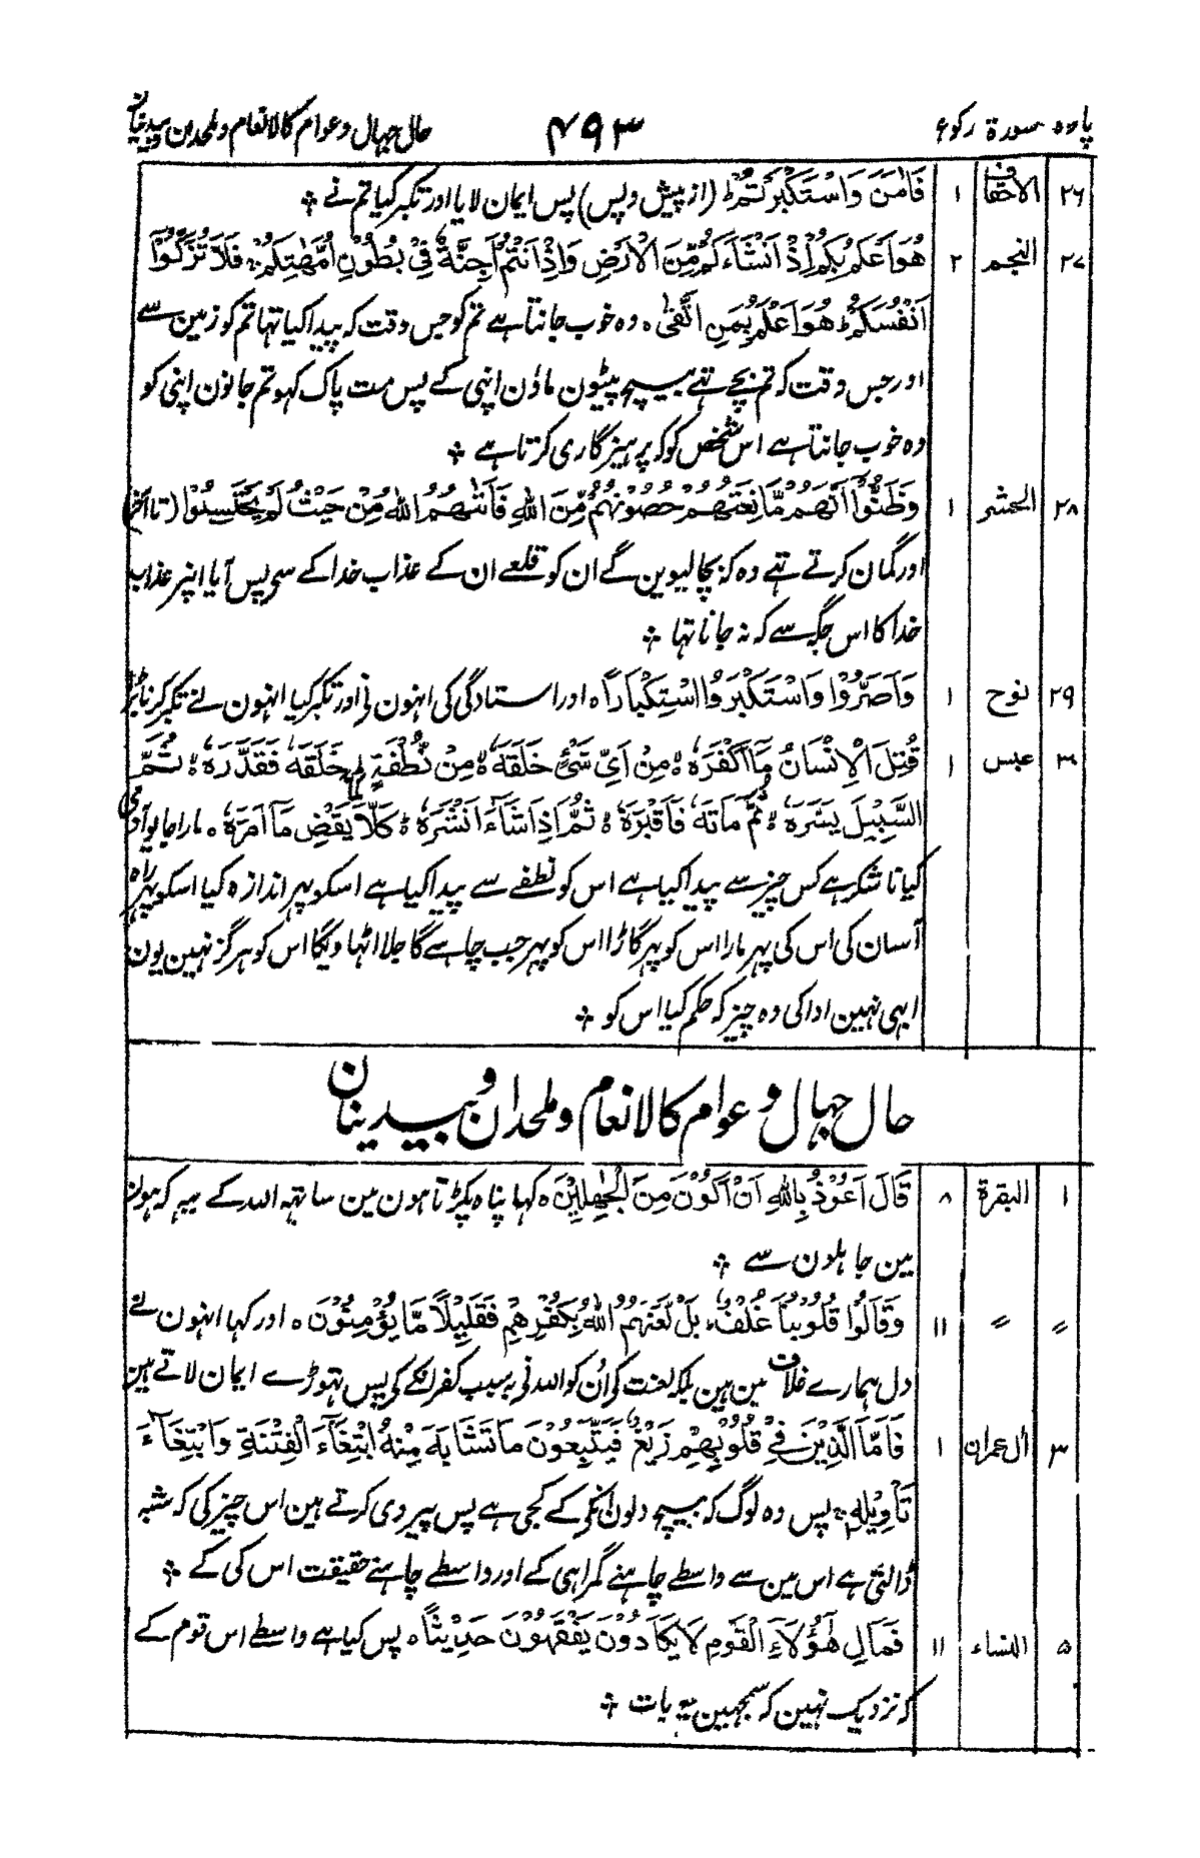 پاره سورة رکوع ۴۹۳ حال جہال و عوام کالانعام و ملحدین و بیدینان
۲۶ الاحقاف ۱ فَاٰمَنَ وَاسْتَكْبَرْتُمْ ؕ (از پیش و پس) پس ایمان لایا اور تکبر کیا تم نے ۞
۲۷ النجم ۲ هُوَ اَعْلَمُ بِكُمْ اِذْ اَنْشَاَكُمْ مِّنَ الْاَرْضِ وَاِذْ اَنْتُمْ اَجِنَّةٌ فِيْ بُطُوْنِ اُمَّهٰتِكُمْ ۚ فَلَا تُزَكُّوْۤا
اَنْفُسَكُمْ ؕ هُوَ اَعْلَمُ بِمَنِ اتَّقٰى ۰ وہ خوب جانتا ہے تم کو جس وقت کہ پیدا کیا تہا تم کو زمین سے
اور جس وقت کہ تم بچے تہے بیچ پیٹون ماؤن اپنی کے پس مت پاک کہو تم جانون اپنی کو
وہ خوب جانتا ہے اس شخص کو کہ پرہیزگاری کرتا ہے ۞
۲۸ الحشر ۱ وَظَنُّوْۤا اَنَّهُمْ مَّانِعَتُهُمْ حُصُوْنُهُمْ مِّنَ اللّٰهِ فَاَتٰىهُمُ اللّٰهُ مِنْ حَيْثُ لَمْ يَحْتَسِبُوْا (تا آخر)
اور گمان کرتے تہے وہ کہ بچا لیوین گے ان کو قلعے ان کے عذاب خدا کے سے پس آیا انپر عذاب
خدا کا اس جگہ سے کہ نہ جانا تہا ۞
۲۹ نوح ۱ وَاَصَرُّوْا وَاسْتَكْبَرُوا اسْتِكْبَارًا ۰ اور استادگی کی انہون نے اور تکبر کیا انہون نے تکبر کرنا بڑا
۳۰ عبس ۱ قُتِلَ الْاِنْسَانُ مَاۤ اَكْفَرَهٗ ؕ مِنْ اَيِّ شَيْءٍ خَلَقَهٗ ؕ مِنْ نُّطْفَةٍ ؕ خَلَقَهٗ فَقَدَّرَهٗ ۙ ثُمَّ
السَّبِيْلَ يَسَّرَهٗ ۙ ثُمَّ اَمَاتَهٗ فَاَقْبَرَهٗ ۙ ثُمَّ اِذَا شَآءَ اَنْشَرَهٗ ؕ كَلَّا لَمَّا يَقْضِ مَاۤ اَمَرَهٗ ۰ مارا جائیو آدمی
کیا ناشکر ہے کس چیز سے پیدا کیا ہے اس کو نطفے سے پیدا کیا ہے اسکو پہر اندازہ کیا اسکو پہر راہ
آسان کی اس کی پہر مارا اس کو پہر گاڑا اس کو پہر جب چاہے گا جلا اٹہا ویگا اس کو ہرگز نہین یون
ابہی نہین ادا کی وہ چیز کہ حکم کیا اس کو ۞
حال جہال و عوام کالانعام و ملحدان و بیدینان
۱ البقرة ۸ قَالَ اَعُوْذُ بِاللّٰهِ اَنْ اَكُوْنَ مِنَ الْجٰهِلِيْنَ ۰ کہا پناہ پکڑتا ہون مین ساتہہ اللہ کے یہہ کہ ہون
مین جاہلون سے ۞
〃 〃 ۱۱ وَقَالُوْا قُلُوْبُنَا غُلْفٌ ؕ بَلْ لَّعَنَهُمُ اللّٰهُ بِكُفْرِهِمْ فَقَلِيْلًا مَّا يُؤْمِنُوْنَ ۰ اور کہا انہون نے
دل ہمارے غلاف مین ہین بلکہ لعنت کی اُن کو اللہ نے بسبب کفر انکے کی پس تہوڑے ایمان لاتے ہین
۳ اٰل عمران ۱ فَاَمَّا الَّذِيْنَ فِيْ قُلُوْبِهِمْ زَيْغٌ فَيَتَّبِعُوْنَ مَا تَشَابَهَ مِنْهُ ابْتِغَآءَ الْفِتْنَةِ وَابْتِغَآءَ
تَاْوِيْلِهٖ ۚ پس وہ لوگ کہ بیچ دلون انکی کے کجی ہے پس پیروی کرتے ہین اس چیز کی کہ شبہ
ڈالتی ہے اس مین سے واسطے چاہنے گمراہی کے اور واسطے چاہنے حقیقت اس کی کے ۞
۵ النساء ۱۱ فَمَالِ هٰۤؤُلَآءِ الْقَوْمِ لَا يَكَادُوْنَ يَفْقَهُوْنَ حَدِيْثًا ۰ پس کیا ہے واسطے اس قوم کے
کہ نزدیک نہین کہ سمجہین یہ بات ۞